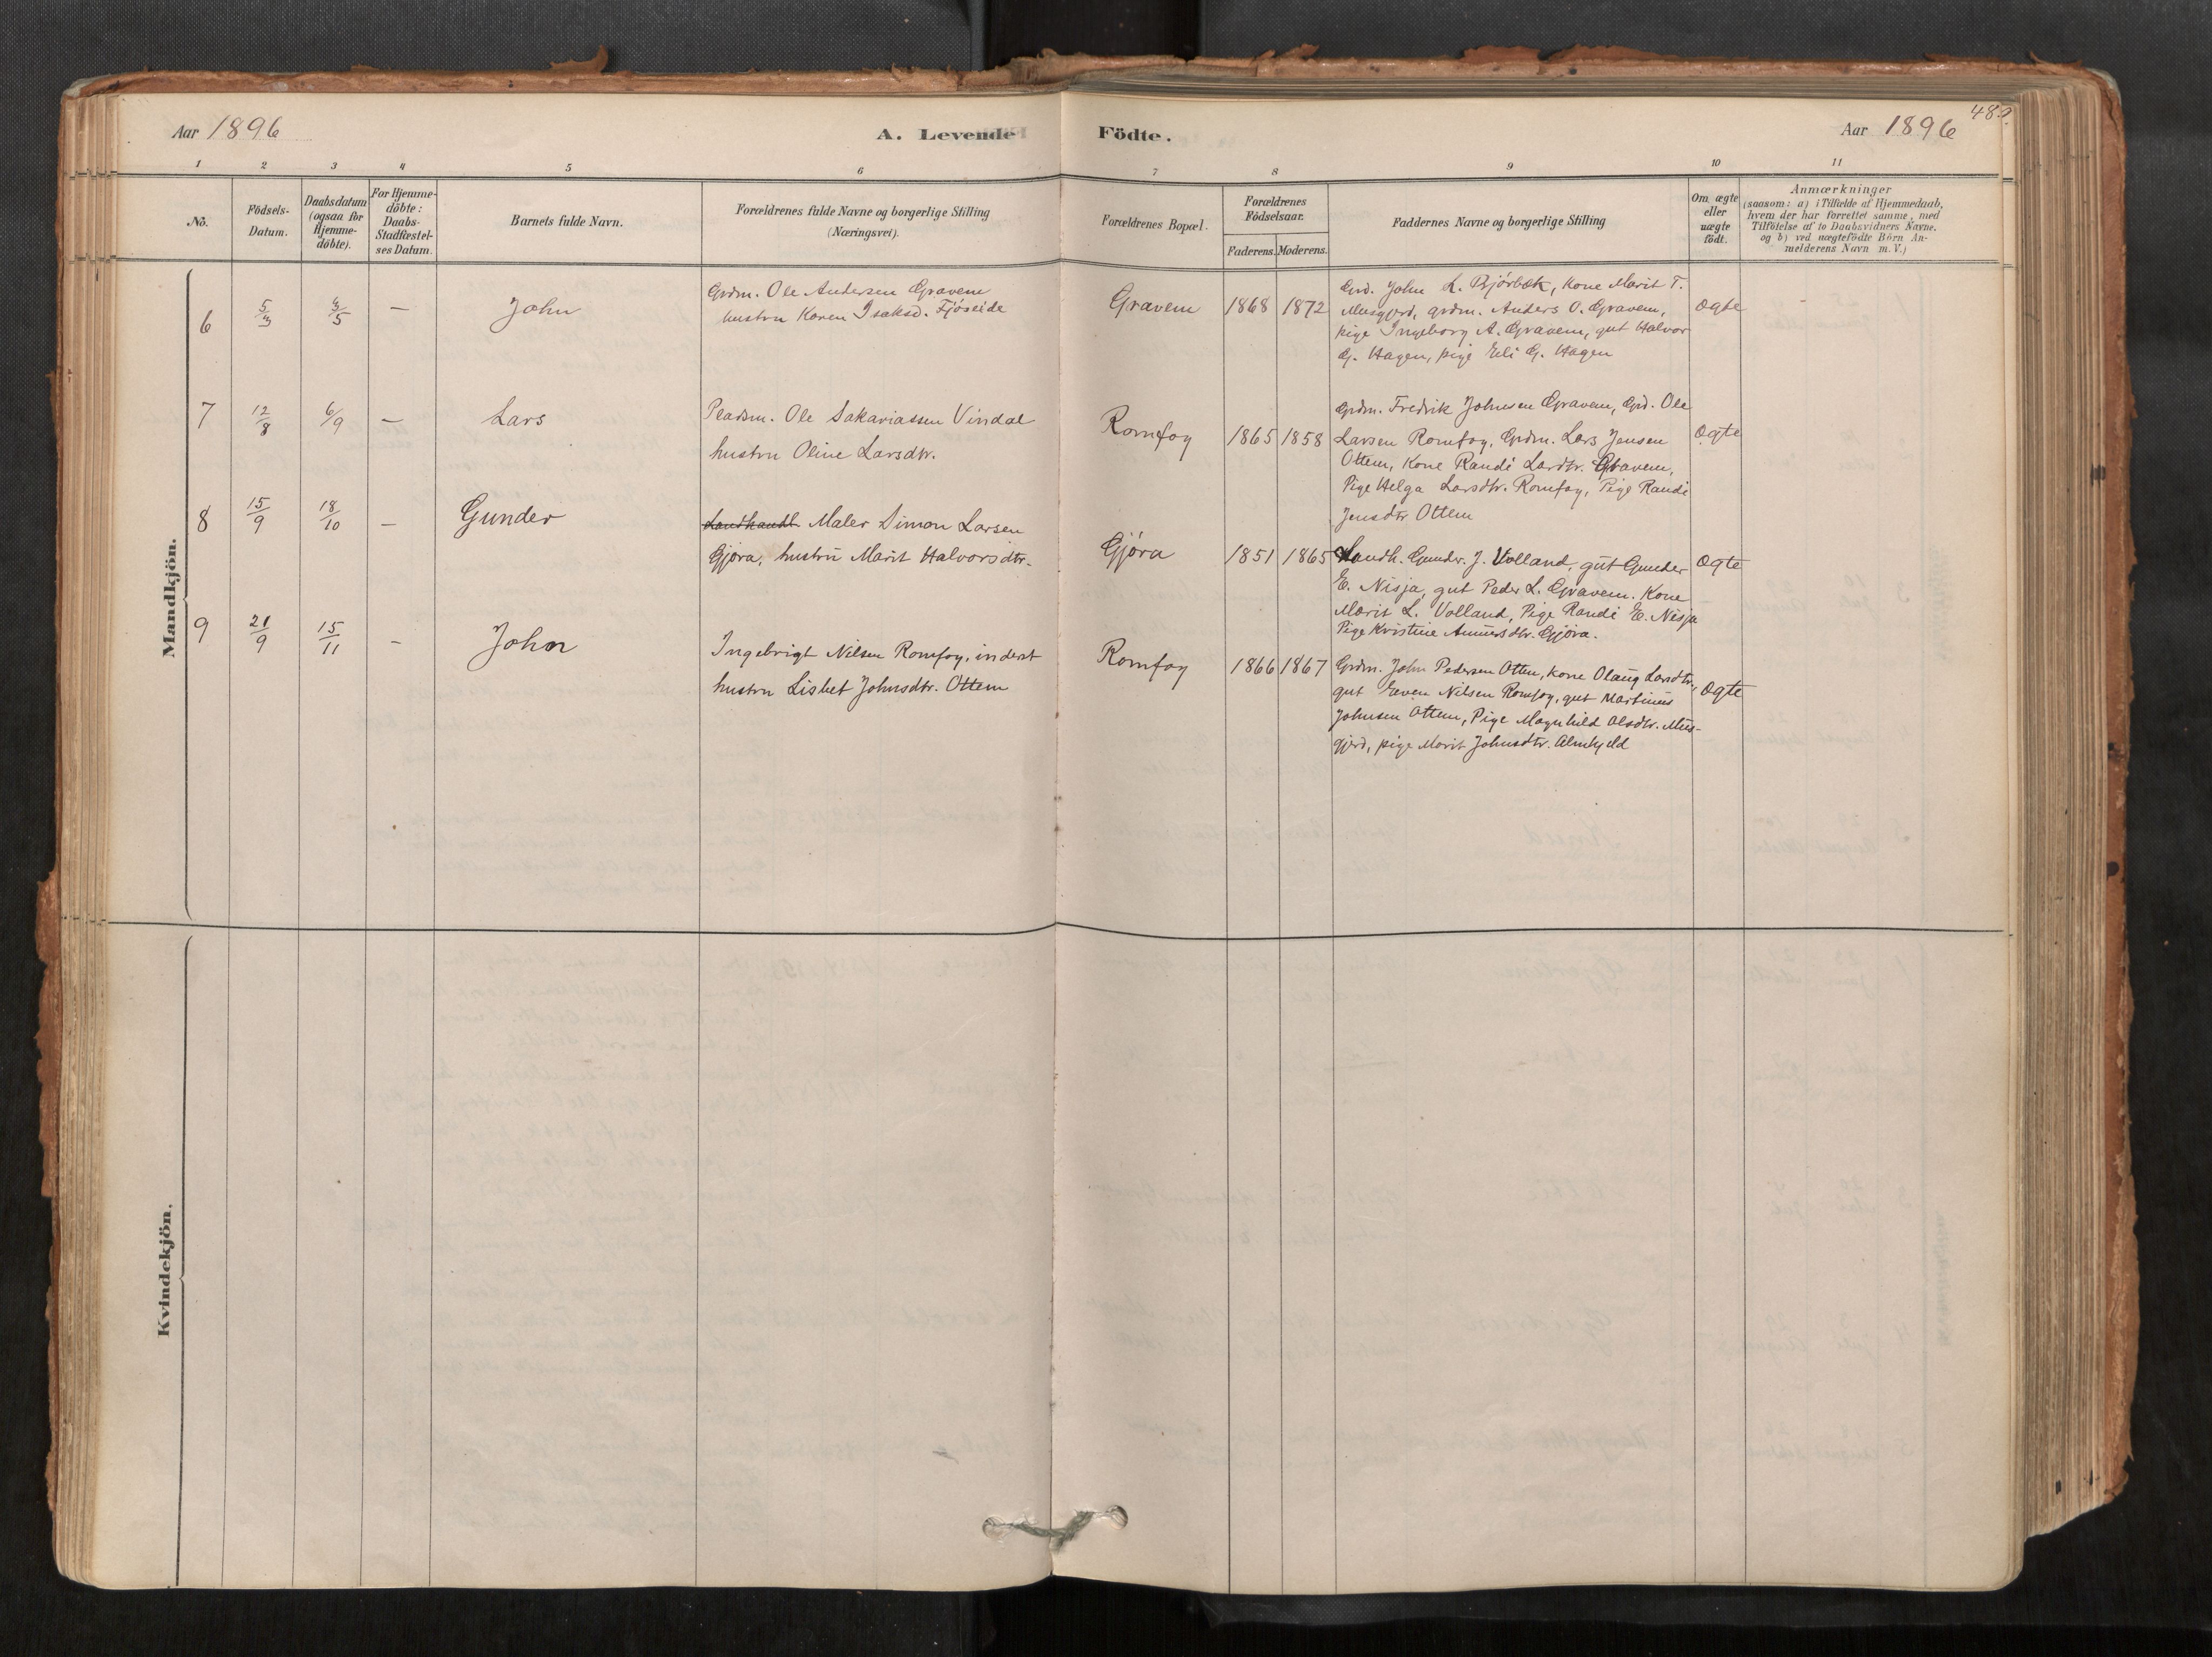 48
Aar 1896 A. Levende Födte. Aar 1896
1 2 3 4 5 6 7 8 9 10 11
No.
Födsels-
Datum.
Daabsdatum
(ogsaa for
Hjemme-
döbte).
For Hjemme-
döbte:
Daabs-
Stadfæstel-
ses Datum.
Barnets fulde Navn.
Forældrenes fulde Navne og borgerlige Stilling
(Næringsvei).
Forældrenes Bopæl.
Forældrenes
Födselsaar.
Faderens. Moderens.
Faddernes Navne og borgerlige Stilling
Om ægte
eller
uægte
födt.
Anmærkninger
(saasom: a) i Tilfælde af Hjemmedaab,
hvem der har forrettet samme, med
Tilföielse af to Daabsvidners Navne.
og b) ved uægtefödte Börn An-
melderens Navn m. V.)
Mandkjön.
6 5/3 3/5 — John
Grdm. Ole Andersen Gravem
hustru Karen Isaksd. Fjöseide
Gravem 1868 1872
Grd. John L. Bjørbæk, Kone Marit T.
Musgjerd, grdm. Anders O. Gravem,
pige Ingeborg A. Gravem, gut Halvor
G. Hagen, pige Eli G. Hagen
Ogte
7 12/8 6/9 — Lars
Pladsm. Ole Sakariassen Vindal
hustru Oline Larsdtr.
Romfog 1865 1858
Grdm. Fredrik Johnsen Gravem, Grd. Ole
Larsen Romfog, Grdm. Lars Jensen
Ottem, Kone Randi Lardtr. Gravem,
Pige Helga Larsdtr. Romfog, Pige Randi
Jensdtr Ottem
Ogte
8 15/9 18/10 — Gunder
Landhandl Maler Simon Larsen
Gjøra, hustru Marit Halvorsdtr.
Gjøra 1851 1865
Landh. Gunder. J. Volland, gut Gunder
E. Nisja, gut Peder L. Gravem. Kone
Marit L. Volland, Pige Randi E. Nisja
Pige Kristine Annersdtr. Gjøra.
Ogte
9 21/9 15/11 – John
Ingebrigt Nilsen Romfog, inderst
hustru Lisbet Johnsdtr. Ottem
Romfog 1866 1867
Grdm. John Pedersen Otten, Kone Olaug Larsdtr,
gut Even Nilsen Romfog, gut Martinus
Johnsen Ottem, Pige Magnhild Olsdtr. Mus-
gjerd, pige Marit Johnsdtr. Almkjeld
Ogte
Kvindekjön.